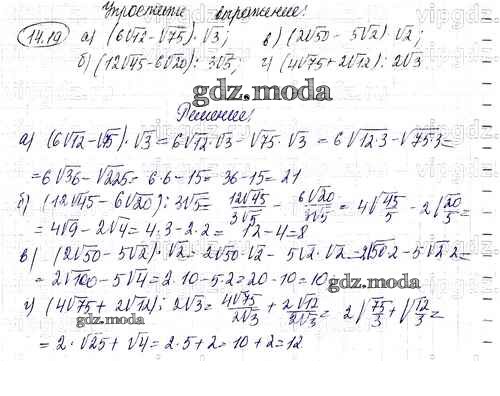 Упростите выражение:
14.10 а) (6√12 - √75)·√3; в) (2√50 - 5√2)·√2;
б) (12√45 - 6√20) : 3√5; г) (4√75 + 2√12) : 2√3
gdz.moda
Решение:
а) (6√12 - √75)·√3 = 6√12·√3 - √75·√3 = 6√12·3 - √75·3 =
= 6√36 - √225 = 6·6 - 15 = 36 - 15 = 21
б) (12√45 - 6√20) : 3√5 = 12√45/3√5 - 6√20/3√5 = 4√45/5 - 2√20/5 =
= 4√9 - 2√4 = 4·3 - 2·2 = 12 - 4 = 8
в) (2√50 - 5√2)·√2 = 2√50·√2 - 5√2·√2 = 2√50·2 - 5√2·2 =
= 2√100 - 5√4 = 2·10 - 5·2 = 20 - 10 = 10
gdz.moda
г) (4√75 + 2√12) : 2√3 = 4√75/2√3 + 2√12/2√3 = 2√75/3 + √12/3 =
gdz.moda
= 2·√25 + √4 = 2·5 + 2 = 10 + 2 = 12